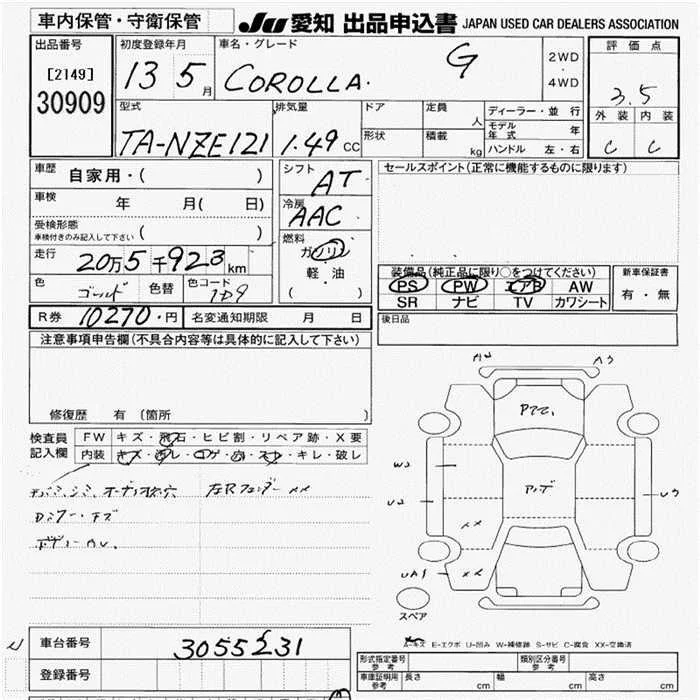 車内保管・守衛保管
JU 愛知 出品申込書 JAPAN USED CAR DEALERS ASSOCIATION
出品番号
[2149]
30909
初度登録年月
13 5月
車名・グレード
COROLLA. G
2WD
・
4WD
評価点
3.5
外装 内装
C C
型式
TA-NZE121
排気量
1.49 CC
ドア
定員
人
形状
積載
kg
ディーラー・並行
モデル年式 年
ハンドル 左・右
車歴
自家用・( )
車検
年 月( 日)
受検形態
車検付きのみ記入して下さい ( )
走行
20万5千923km
色
ゴールド
色替
色コード
シフト
AT
冷房
AAC
燃料
ガソリン
軽油
( )
セールスポイント(正常に機能するものに限ります)
装備品(純正品に限り○をつけてください)
PS PW エアB AW
SR ナビ TV カワシート
新車保証書
有・無
後日品
R券 10270・円 名変通知期限 月 日
注意事項申告欄(不具合内容等は具体的に記入して下さい)
修復歴 有 (箇所 )
検査員
記入欄
FW キズ・飛石・ヒビ割・リペア跡・X要
内装 キズ・汚レ・コゲ・穴・スレ・キレ・破レ
左Rフェンダー XX
A2
A3
W3
U2
U3
XX
UA1
XX
スペア
A-キズ E-エクボ U-凹み W-補修跡 S-サビ C-腐食 XX-交換済
車台番号
3055231
登録番号
形式指定番号
参考
類別区分番号
参考
車庫証明用
参考
長さ cm 幅 cm 高さ cm